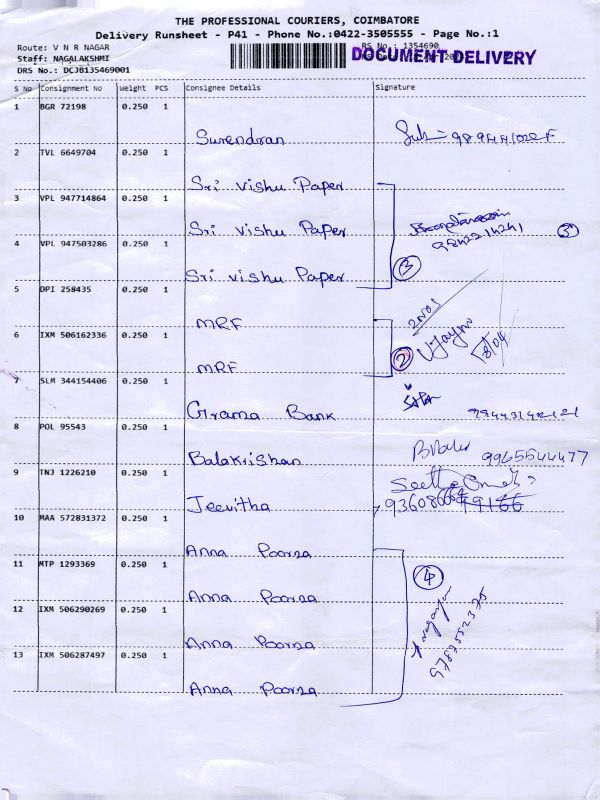 THE PROFESSIONAL COURIERS, COIMBATORE
Delivery Runsheet - P41 - Phone No.:0422-3505555 - Page No.:1
Route: V N R NAGAR
RS No.: 1354690
Staff: NAGALAKSHMI
DOCUMENT DELIVERY
DRS No.: DCJB135469001
S No Consignment No Weight PCS Consignee Details Signature
1 BGR 72198 0.250 1
Surendran
2 TVL 6649704 0.250 1
Sri Vishu Paper
3 VPL 947714864 0.250 1
Sri Vishu Paper
9842214241 3
4 VPL 947503286 0.250 1
Sri vishu Paper 3
5 DPI 258435 0.250 1
MRF 2NOS
6 IXM 506162336 0.250 1
MRF 2
7 SLM 344154406 0.250 1
Grama Bank
8 POL 95543 0.250 1
Balakrishan 9965544477
9 TNJ 1226210 0.250 1
Jeevitha
10 MAA 572831372 0.250 1
Anna Poorna
11 MTP 1293369 0.250 1
Anna Poorna 4
12 IXM 506290269 0.250 1
Anna Poorna
13 IXM 506287497 0.250 1
Anna Poorna